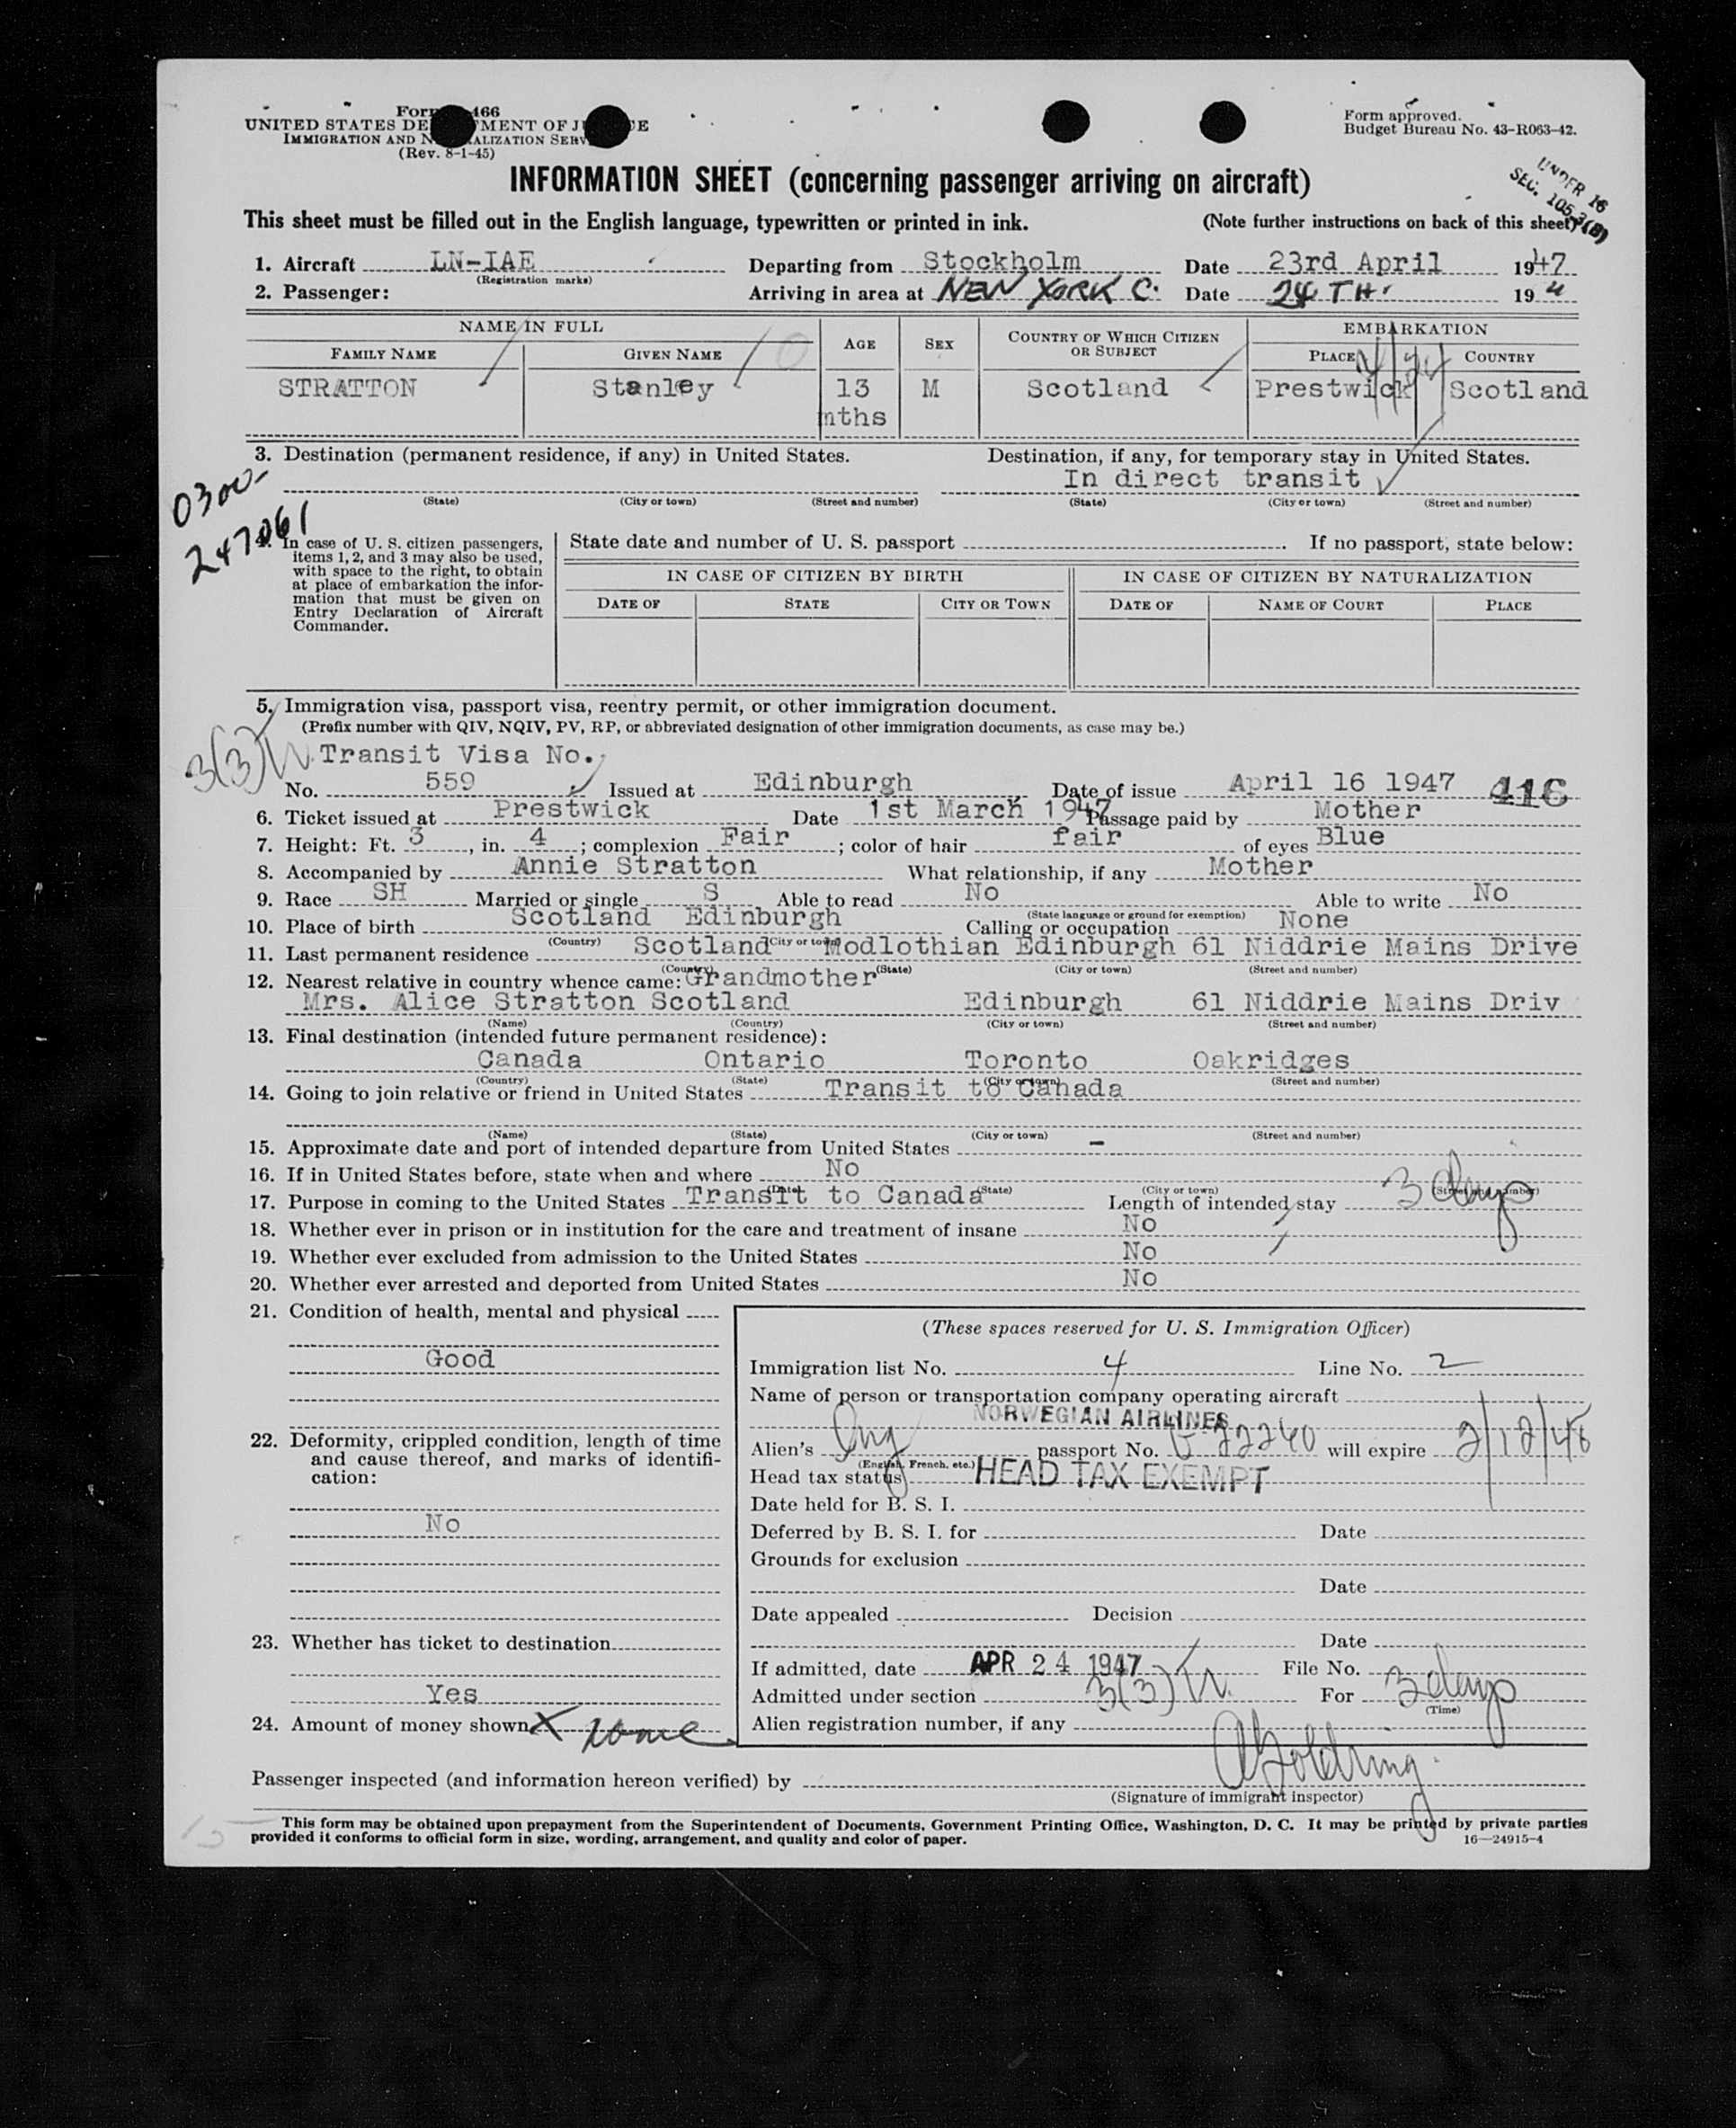 Form 466
UNITED STATES DE MENT OF J E
IMMIGRATION AND N ALIZATION SERV
(Rev. 8-1-45)
Form approved.
Budget Bureau No. 43-R063-42.
INFORMATION SHEET (concerning passenger arriving on aircraft)
UNDER 16
SEC. 105.3(B)
This sheet must be filled out in the English language, typewritten or printed in ink. (Note further instructions on back of this sheet)
1. Aircraft LN-IAE Departing from Stockholm Date 23rd April 1947
(Registration marks)
2. Passenger: Arriving in area at NEW YORK C. Date 24 TH. 194
NAME IN FULL AGE SEX COUNTRY OF WHICH CITIZEN OR SUBJECT EMBARKATION
FAMILY NAME GIVEN NAME PLACE COUNTRY
4/24
STRATTON Stanley 13 M Scotland Prestwick Scotland
mths
3. Destination (permanent residence, if any) in United States. Destination, if any, for temporary stay in United States.
In direct transit
(State) (City or town) (Street and number) (State) (City or town) (Street and number)
0300-
247061
4. In case of U. S. citizen passengers,
items 1, 2, and 3 may also be used,
with space to the right, to obtain
at place of embarkation the infor-
mation that must be given on
Entry Declaration of Aircraft
Commander.
State date and number of U. S. passport . If no passport, state below:
IN CASE OF CITIZEN BY BIRTH IN CASE OF CITIZEN BY NATURALIZATION
DATE OF STATE CITY OR TOWN DATE OF NAME OF COURT PLACE
5. Immigration visa, passport visa, reentry permit, or other immigration document.
(Prefix number with QIV, NQIV, PV, RP, or abbreviated designation of other immigration documents, as case may be.)
3(3) Transit Visa No.
No. 559 Issued at Edinburgh Date of issue April 16 1947 416
6. Ticket issued at Prestwick Date 1st March 1947 Passage paid by Mother
7. Height: Ft. 3, in. 4; complexion Fair; color of hair fair of eyes Blue
8. Accompanied by Annie Stratton What relationship, if any Mother
9. Race SH Married or single S Able to read No Able to write No
(State language or ground for exemption)
10. Place of birth Scotland Edinburgh Calling or occupation None
(Country) (City or town)
11. Last permanent residence Scotland Modlothian Edinburgh 61 Niddrie Mains Drive
(Country) (State) (City or town) (Street and number)
12. Nearest relative in country whence came: Grandmother
Mrs. Alice Stratton Scotland Edinburgh 61 Niddrie Mains Driv
(Name) (Country) (City or town) (Street and number)
13. Final destination (intended future permanent residence):
Canada Ontario Toronto Oakridges
(Country) (State) (City or town) (Street and number)
14. Going to join relative or friend in United States Transit to Canada
(Name) (State) (City or town) (Street and number)
15. Approximate date and port of intended departure from United States -
16. If in United States before, state when and where No
(Date) (State) (City or town) (Street and number)
17. Purpose in coming to the United States Transit to Canada Length of intended stay 3 days
18. Whether ever in prison or in institution for the care and treatment of insane No
19. Whether ever excluded from admission to the United States No
20. Whether ever arrested and deported from United States No
21. Condition of health, mental and physical
Good
22. Deformity, crippled condition, length of time
and cause thereof, and marks of identifi-
cation:
No
23. Whether has ticket to destination
Yes
24. Amount of money shown X none
(These spaces reserved for U. S. Immigration Officer)
Immigration list No. 4 Line No. 2
Name of person or transportation company operating aircraft
NORWEGIAN AIRLINES
Alien's Eng passport No. 22240 will expire 2/12/48
(English, French, etc.)
Head tax status HEAD TAX EXEMPT
Date held for B. S. I.
Deferred by B. S. I. for Date
Grounds for exclusion
Date
Date appealed Decision
Date
If admitted, date APR 24 1947 File No.
Admitted under section 3(3) Tr. For 3 days
(Time)
Alien registration number, if any
Passenger inspected (and information hereon verified) by A Goldring
(Signature of immigrant inspector)
This form may be obtained upon prepayment from the Superintendent of Documents, Government Printing Office, Washington, D. C. It may be printed by private parties
provided it conforms to official form in size, wording, arrangement, and quality and color of paper. 16—24915-4